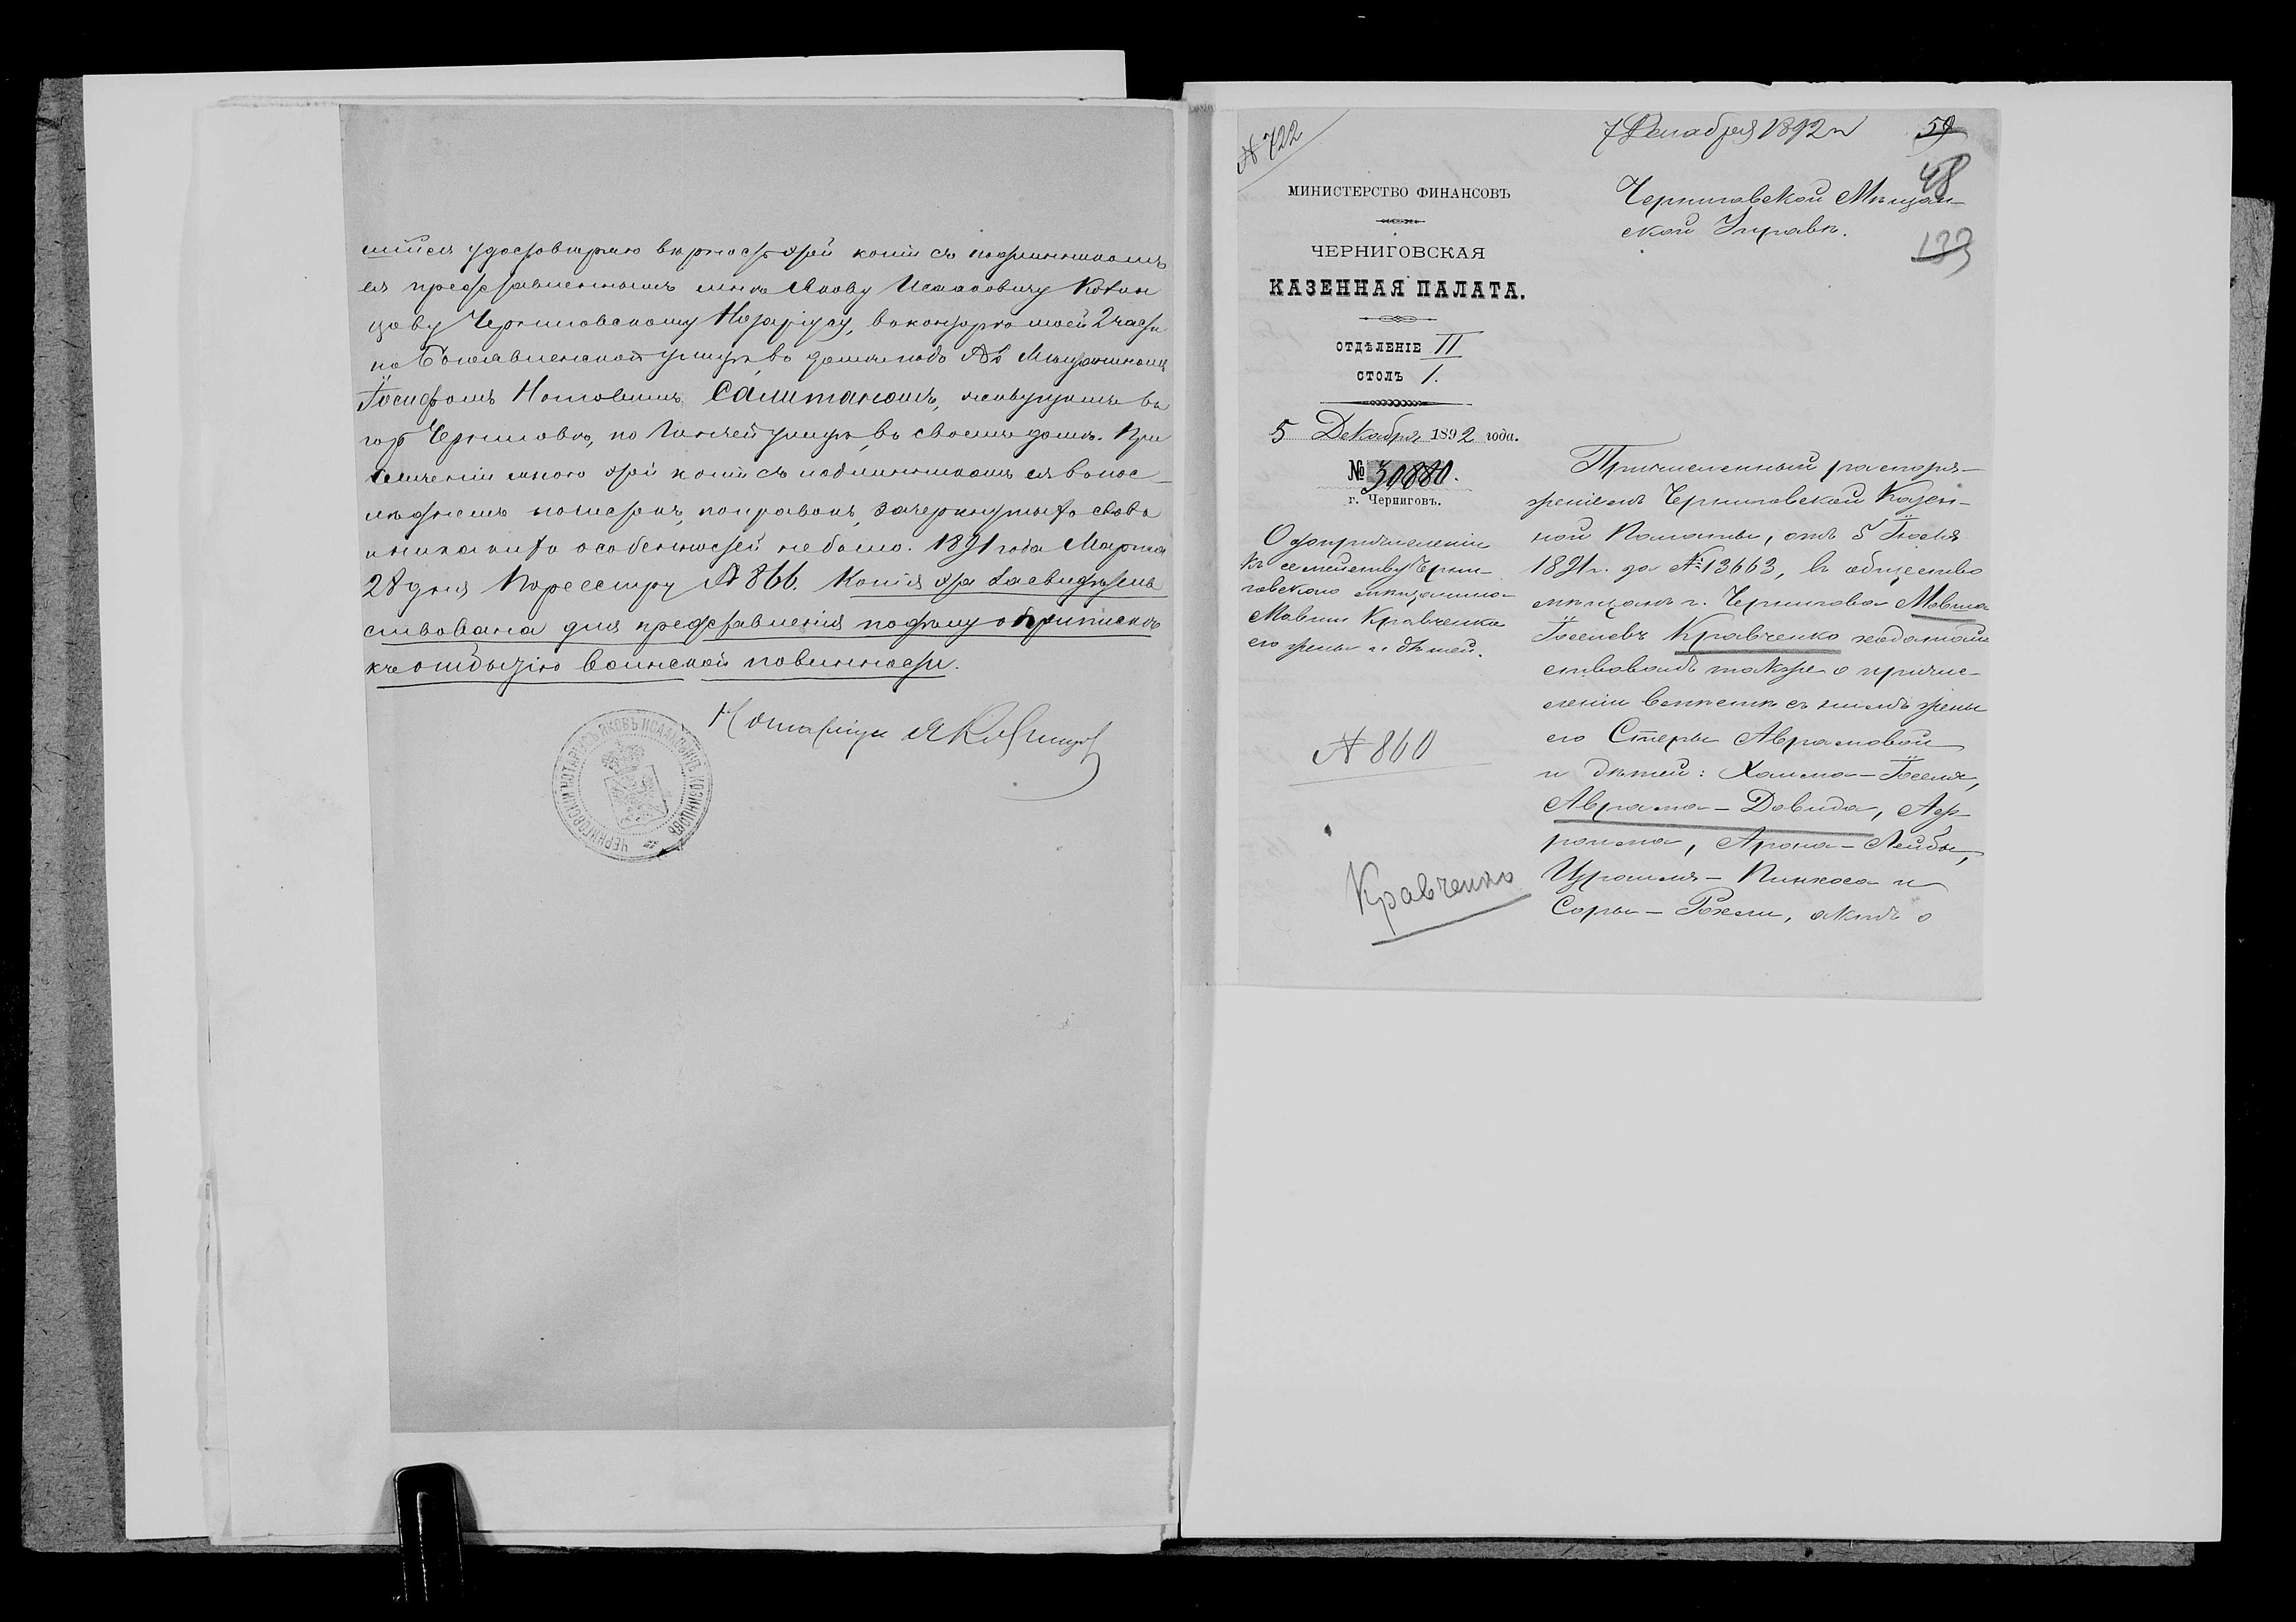 удостовѣряю вѣрность этой копіи съ подлинникомъ
ея представленнымъ мнѣ Якову Исааковичу Козин
цову Черниговскому Нотаріусу, въ конторѣ моей 2 части
по Богоявленской улицѣ, въ домѣ подъ № Мѣщаниномъ
Іосифомъ Салитаномъ, живущимъ въ
гор Черниговѣ, по улицѣ, въ своемъ домѣ. При
сличеніи мною этой копіи съ подлинникомъ ея въ пос-
лѣднемъ помарокъ, поправокъ, зачеркнутыхъ словъ
и никакихъ особенностей не было. 1891 года Марта
28 дня По реестру № 866. Копія эта засвидѣтель
ствована для представленія подлежащему о припискѣ
къ отбытію воинской повинности.
Нотаріусъ Я Козинцовъ
ЧЕРНИГОВСКІЙ НОТАРІУСЪ ЯКОВЪ ИСААКОВИЧЪ КОЗИНЦОВЪ
№ 722
7 Декабря 1892 г
59
48
133
МИНИСТЕРСТВО ФИНАНСОВЪ
ЧЕРНИГОВСКАЯ
КАЗЕННАЯ ПАЛАТА.
ОТДѢЛЕНІЕ II
СТОЛЪ 1.
5 Декабря 1892 года.
№ 30880.
г. Черниговъ.
О допричисленіи
къ семейству Черни-
говского мѣщанина
Мовши Кравченка
его жены и дѣтей.
№ 860
Кравченко
Черниговской Мѣщан-
ской Управѣ.
Причисленный распоря-
женіемъ Черниговской Казен-
ной Палаты, отъ 5 Іюля
1891 г. за № 13663, въ общество
мѣщанъ г. Чернигова Мовша
Іоселевъ Кравченко ходатай
ствовалъ также о причис-
леніи вмѣстѣ съ нимъ жены
его Стеры Абрамовой
и дѣтей: Хаима-Іоселя,
Абрама-Довида, Аф-
роима, Арона-Лейбы,
Израиля-Пинхоса и
Соры-Рохли, о